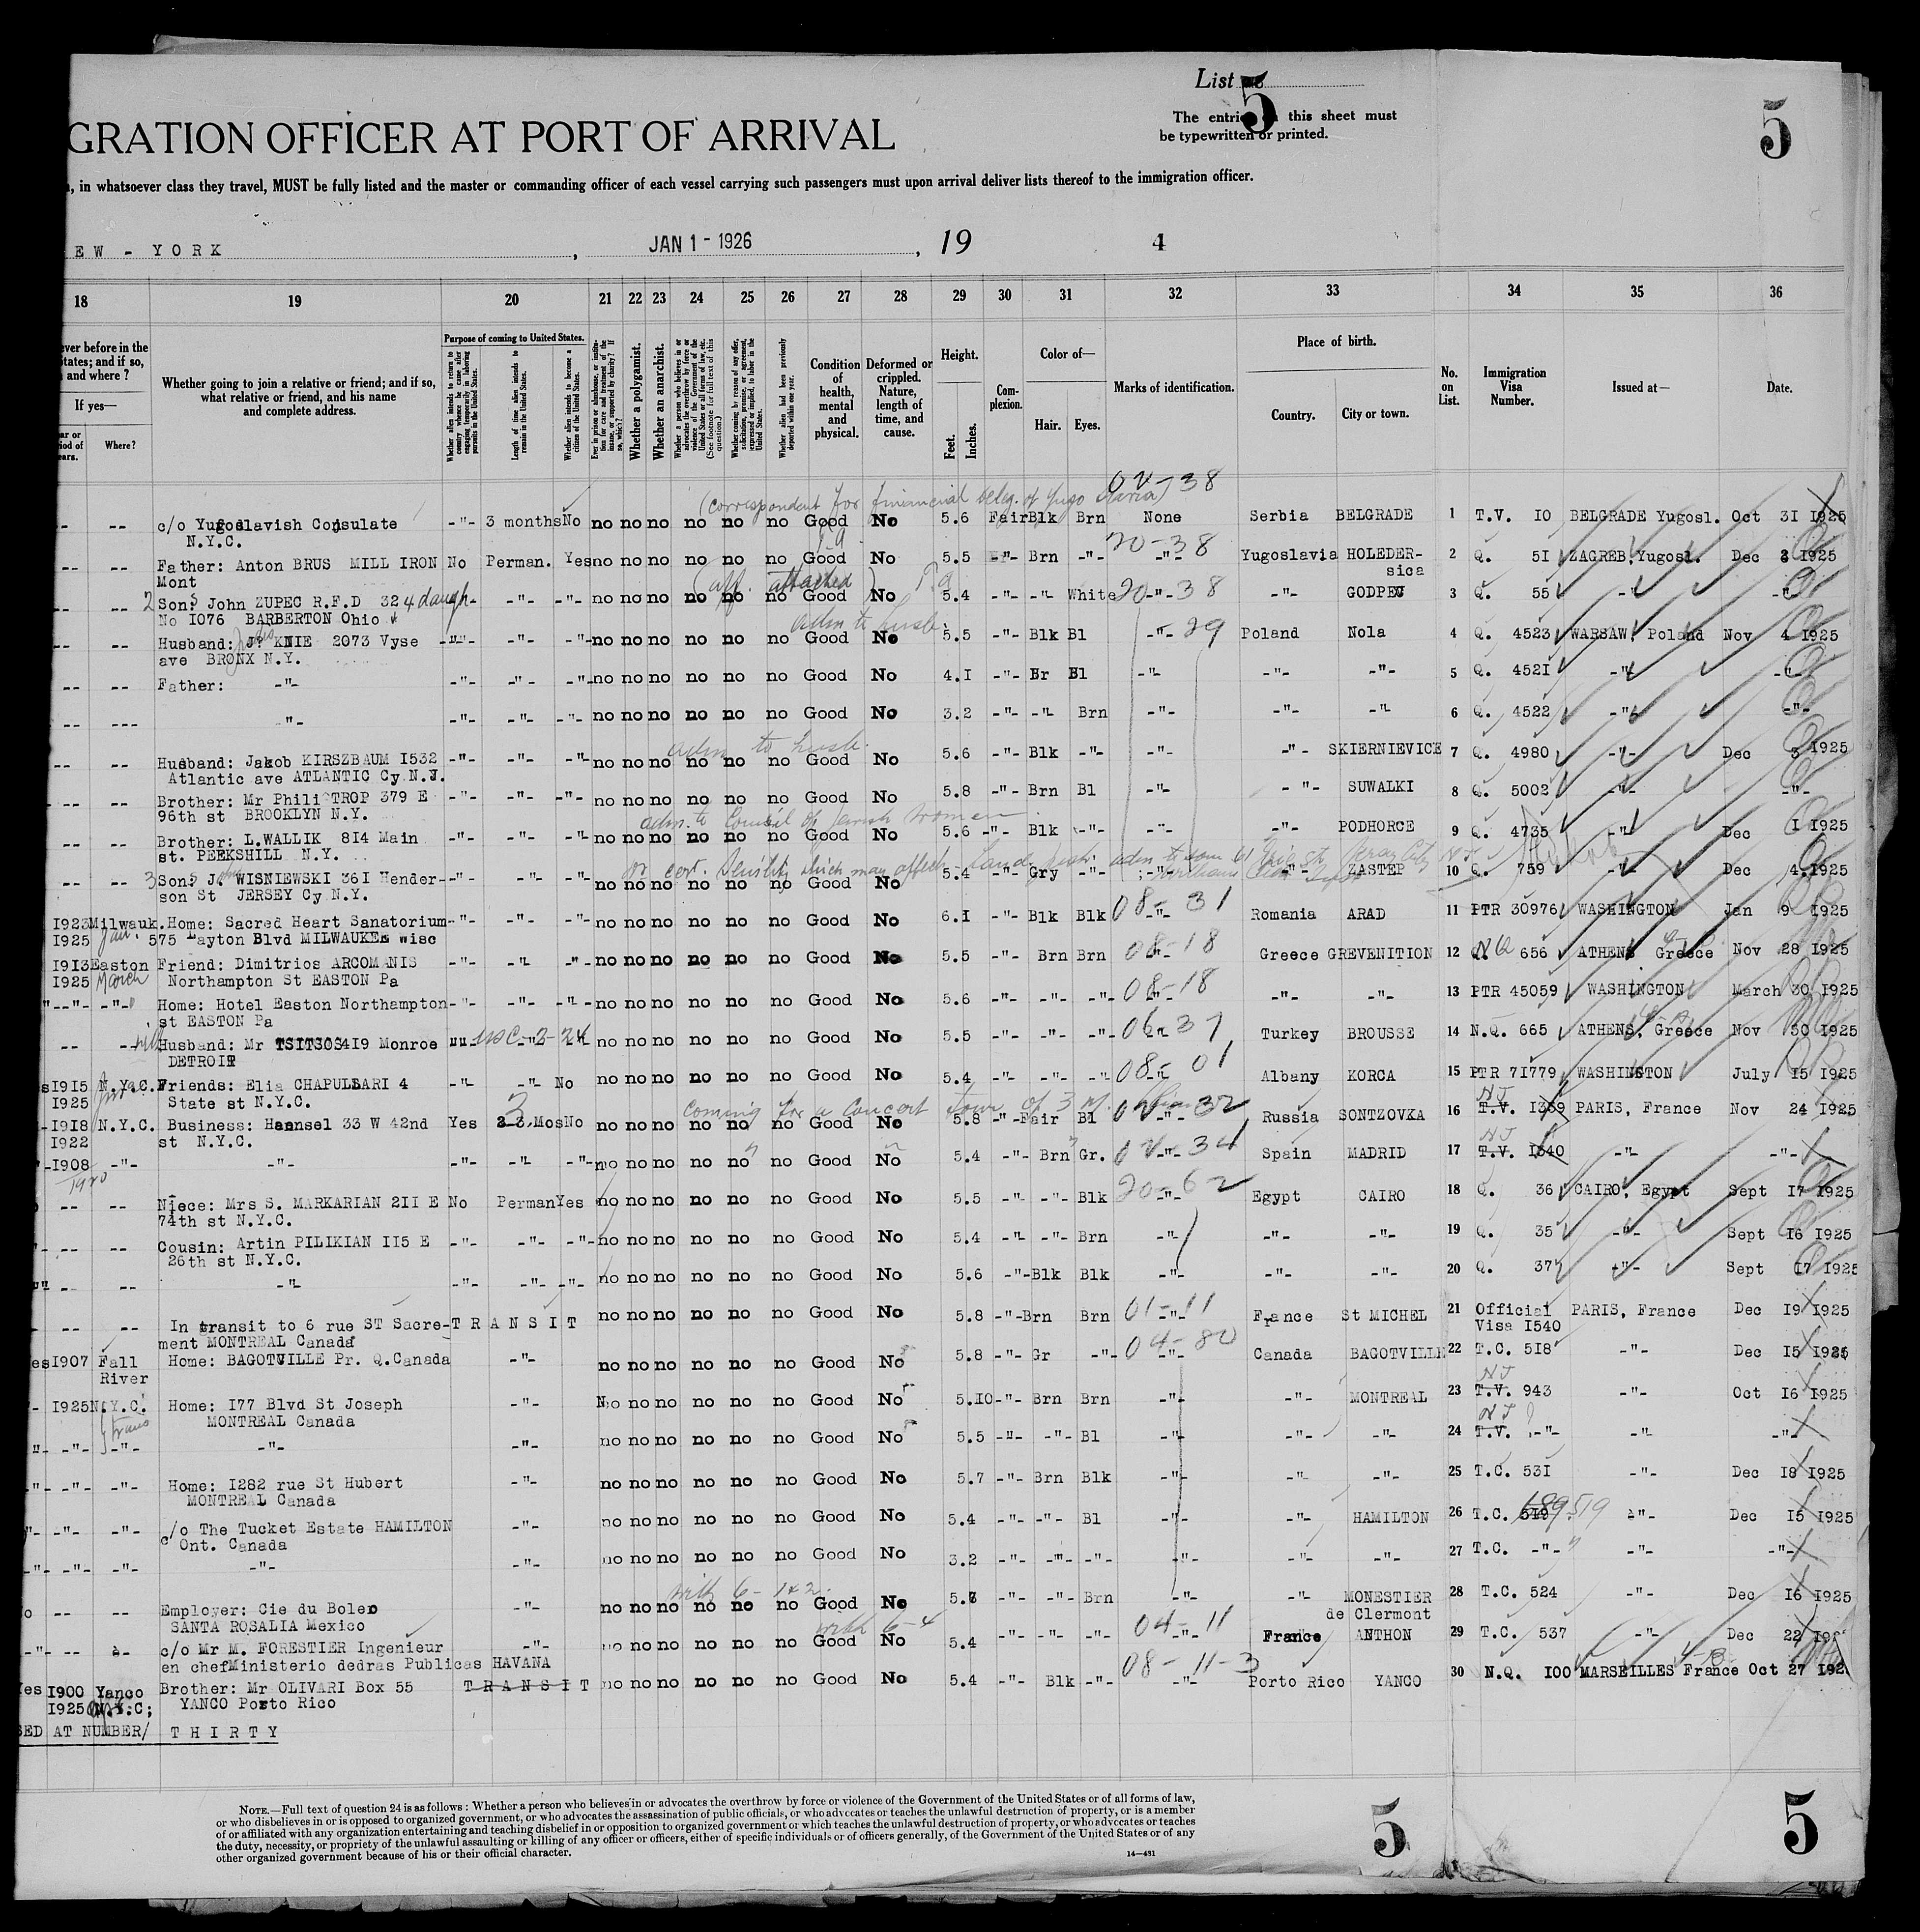 List
5
The entries on this sheet must
be typewritten or printed.
5
GRATION OFFICER AT PORT OF ARRIVAL
, in whatsoever class they travel, MUST be fully listed and the master or commanding officer of each vessel carrying such passengers must upon arrival deliver lists thereof to the immigration officer.
EW - YORK , JAN 1 - 1926 , 19 4
18 19 20 21 22 23 24 25 26 27 28 29 30 31 32 33 34 35 36
ever before in the
States; and if so,
and where?
If yes—
Where?
Whether going to join a relative or friend; and if so,
what relative or friend, and his name
and complete address.
Purpose of coming to United States.
Whether a polygamist.
Whether an anarchist.
Condition of health, mental and physical.
Deformed or crippled. Nature, length of time, and cause.
Height.
Feet. Inches.
Complexion.
Color of—
Hair. Eyes.
Marks of identification.
Place of birth.
Country. City or town.
No. on List.
Immigration Visa Number.
Issued at—
Date.
(correspondent for financial deleg. of Yugo Slavia) 02-38
-- -- c/o Yugoslavish Consulate -"- 3 months No no no no no no no Good No 5.6 Fair Blk Brn None Serbia BELGRADE 1 T.V. 10 BELGRADE Yugosl. Oct 31 1925
N.Y.C.
20-38
-- -- Father: Anton BRUS MILL IRON No Perman. Yes no no no no no no Good No 5.5 -"- Brn -"- -"- Yugoslavia HOLEDER- 2 Q. 51 ZAGREB, Yugosl. Dec 2 1925
Mont sica
(aff. attached)
-- -- 2 Sons John ZUPEC R.F.D 324 daugh- -"- -"- no no no no no no Good No 5.4 -"- -"- White 20-38 -"- GODPEC 3 Q. 55 -"- -"-
No 1076 BARBERTON Ohio
adm to husb.
-- -- Husband: J. KNIE 2073 Vyse -"- -"- -"- no no no no no no Good No 5.5 -"- Blk Bl -"- 29 Poland Nola 4 Q. 4523 WARSAW, Poland Nov 4 1925
ave BRONX N.Y.
-- -- Father: -"- -"- -"- -"- no no no no no no Good No 4.1 -"- Br Bl -"- -"- -"- 5 Q. 4521 -"- -"-
-- --- -"- -"- -"- -"- no no no no no no Good No 3.2 -"- -"- Brn -"- -"- -"- 6 Q. 4522 -"- -"-
adm to husb.
-- -- Husband: Jakob KIRSZBAUM 1532 -"- -"- -"- no no no no no no Good No 5.6 -"- Blk -"- -"- -"- SKIERNIEVICE 7 Q. 4980 -"- Dec 3 1925
Atlantic ave ATLANTIC Cy N.J.
-- -- Brother: Mr Phili TROP 379 E -"- -"- -"- no no no no no no Good No 5.8 -"- Brn Bl -"- -"- SUWALKI 8 Q. 5002 -"- -"-
96th st BROOKLYN N.Y.
adm. to Council of Jewish Women
-- -- Brother: L.WALLIK 814 Main -"- -"- -"- no no no no no no Good No 5.6 -"- Blk -"- -"- -"- PODHORCE 9 Q. 4735 -"- Dec 1 1925
st. PEEKSHILL N.Y.
cert. senility which may affect
-- -- 3 Sons J. WISNIEWSKI 361 Hender- -"- -"- -"- no no no no no no Good No 5.4 -"- Gry -"- -"- -"- ZASTEP 10 Q. 759 -"- Dec 4 1925
son St JERSEY Cy N.Y.
1923 Milwauk. Home: Sacred Heart Sanatorium -"- -"- -"- no no no no no no Good No 6.1 -"- Blk Blk 08-31 Romania ARAD 11 PTR 30976 WASHINGTON Jan 9 1925
1925 Jan. 575 Layton Blvd MILWAUKEE wisc
1913 Easton Friend: Dimitrios ARCOMANIS -"- -"- -"- no no no no no no Good No 5.5 -"- Brn Brn 08-18 Greece GREVENITION 12 NQ 656 ATHENS Greece Nov 28 1925
1925 March Northampton St EASTON Pa
-"- -"- Home: Hotel Easton Northampton -"- -"- -"- no no no no no no Good No 5.6 -"- -"- -"- 08-18 -"- -"- 13 PTR 45059 WASHINGTON March 30 1925
st EASTON Pa
-- -- Husband: Mr TSITSOS 419 Monroe -"- -"- no no no no no no Good No 5.5 -"- -"- -"- 06-37 Turkey BROUSSE 14 N.Q. 665 ATHENS, Greece Nov 30 1925
DETROIT
1915 N.Y.C. Friends: Elia CHAPULLARI 4 -"- -"- No no no no no no no Good No 5.4 -"- -"- -"- 08-01 Albany KORCA 15 PTR 71779 WASHINGTON July 15 1925
1925 State st N.Y.C.
coming for a concert tour of 3 m.
1918 N.Y.C. Business: Haensel 33 W 42nd Yes 3 Mos No no no no no no no Good No 5.8 -"- Fair Bl 02-32 Russia SONTZOVKA 16 NJ T.V. 1339 PARIS, France Nov 24 1925
1922 st N.Y.C.
1908 -"- -"- -"- -"- -"- no no no no no no Good No 5.4 -"- Brn Gr. 02-34 Spain MADRID 17 NJ T.V. 1340 -"- -"-
1920
-- -- Niece: Mrs S. MARKARIAN 211 E No Perman Yes no no no no no no Good No 5.5 -"- -"- Blk 20-62 Egypt CAIRO 18 Q. 36 CAIRO, Egypt Sept 17 1925
74th st N.Y.C.
-- -- Cousin: Artin PILIKIAN 115 E -"- -"- -"- no no no no no no Good No 5.4 -"- -"- Brn -"- -"- -"- 19 Q. 35 -"- Sept 16 1925
26th st N.Y.C.
-"- -- -- -"- -"- -"- -"- no no no no no no Good No 5.6 -"- Blk Blk -"- -"- -"- 20 Q. 37 -"- Sept 17 1925
-- -- In transit to 6 rue ST Sacre- TRANSIT no no no no no no Good No 5.8 -"- Brn Brn 01-11 France St MICHEL 21 Official PARIS, France Dec 19 1925
ment MONTREAL Canada Visa 1540
es 1907 Fall Home: BAGOTVILLE Pr. Q.Canada -"- no no no no no no Good No 5.8 -"- Gr -"- 04-80 Canada BAGOTVILLE 22 T.C. 518 -"- Dec 15 1925
River
- 1925 N.Y.C. Home: 177 Blvd St Joseph -"- No no no no no no Good No 5.10 -"- Brn Brn -"- -"- MONTREAL 23 NJ T.V. 943 -"- Oct 16 1925
trans MONTREAL Canada
-"- -"- -"- -"- -"- no no no no no no Good No 5.5 -"- -"- Bl -"- -"- -"- 24 NJ T.V. -"- -"- -"-
-"- -"- -"- Home: 1282 rue St Hubert -"- no no no no no no Good No 5.7 -"- Brn Blk -"- -"- -"- 25 T.C. 531 -"- Dec 18 1925
MONTREAL Canada
-"- -"- -"- c/o The Tucket Estate HAMILTON -"- no no no no no no Good No 5.4 -"- -"- Bl -"- -"- HAMILTON 26 T.C. 519 -"- Dec 15 1925
Ont. Canada
-"- -"- -"- -"- -"- no no no no no no Good No 3.2 -"- -"- -"- -"- -"- -"- 27 T.C. -"- -"- -"-
with 6-1 & 2.
o -- -- Employer: Cie du Boleo -"- no no no no no no Good No 5.8 -"- -"- Brn -"- -"- MONESTIER 28 T.C. 524 -"- Dec 16 1925
SANTA ROSALIA Mexico de Clermont
with 6-4
-"- -- -- c/o Mr M. FORESTIER Ingenieur -"- no no no no no no Good No 5.4 -"- -"- -"- 04-11 France ANTHON 29 T.C. 537 -"- Dec 22 192
en chef Ministerio dedras Publicas HAVANA
Yes 1900 Yanco Brother: Mr OLIVARI Box 55 TRANSIT no no no no no no Good No 5.4 -"- Blk -"- 08-11-3 Porto Rico YANCO 30 N.Q. 100 MARSEILLES France Oct 27 192
1925 N.Y.C; YANCO Porto Rico
SED AT NUMBER/ THIRTY
NOTE.—Full text of question 24 is as follows: Whether a person who believes in or advocates the overthrow by force or violence of the Government of the United States or of all forms of law,
or who disbelieves in or is opposed to organized government, or who advocates the assassination of public officials, or who advocates or teaches the unlawful destruction of property, or is a member
of or affiliated with any organization entertaining and teaching disbelief in or opposition to organized government or which teaches the unlawful destruction of property, or who advocates or teaches
the duty, necessity, or propriety of the unlawful assaulting or killing of any officer or officers, either of specific individuals or of officers generally, of the Government of the United States or of any
other organized government because of his or their official character.
14—431
5
5